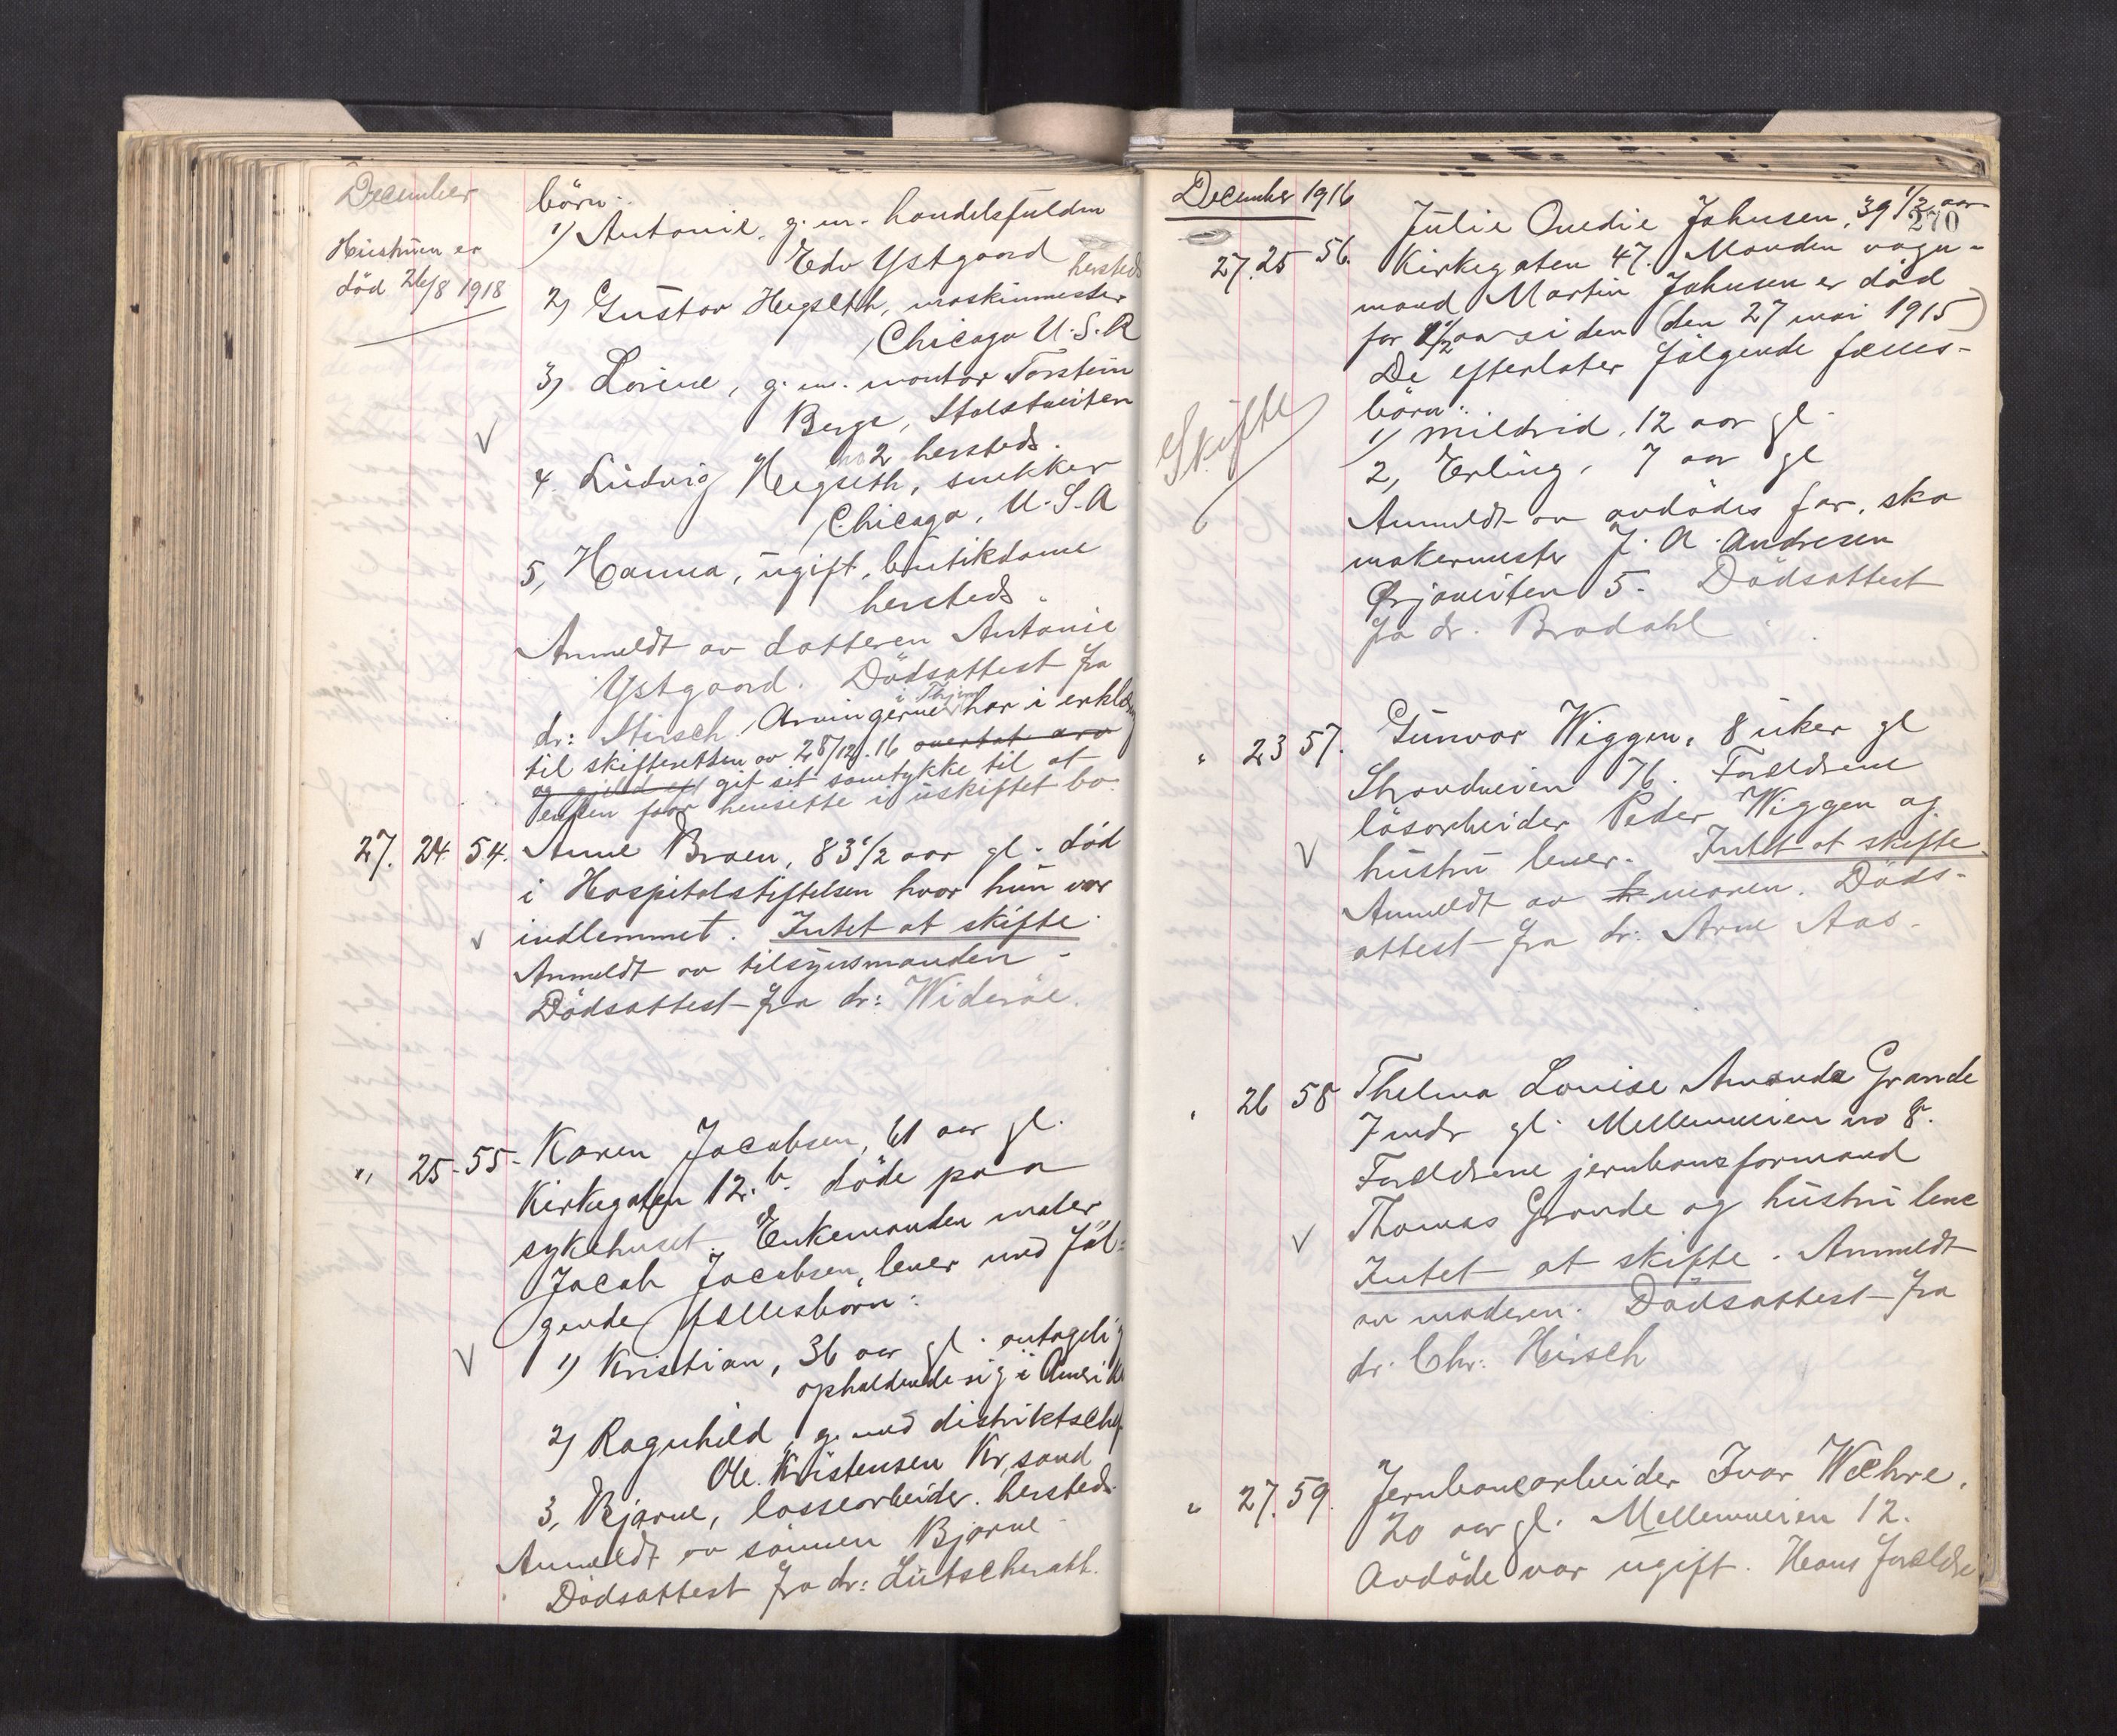 December
Hustruen er
död 26/8 1918
börn:
1) Antonie, g. m. handelsfuldm
Edv Ystgaard
hersteds
2) Gustav Hegseth, maskinmester
Chicago U.S.A
3) Lovine, g. m. montör Torstein
Berge, Stolstveiten
no 2 hersteds.
4. Ludvig Hegseth, snekker
Chicago, U.S.A
5, Hanna, ugift, butikdame
hersteds.
Anmeldt av datteren Antonie
Ystgaard. Dödsattest fra
dr: Hirsch. Arvingerne har i erklæring
til skifteretten av 28/12.16 overtat arv
og gjeld git sit samtykke til at
enken faar hensitte i uskiftet bo.
27. 24 54. Anne Braen, 83 1/2 aar gl. död
i Hospitalstiftelsen hvor hun var
indlemmet. Intet at skifte.
Anmeldt av tilsynsmanden -
Dödsattest fra dr: Wideröe.
" 25. 55. Karen Jacobsen, 61 aar gl.
Kirkegaten 12. b. döde paa
sykehuset. Enkemanden maler
Jacob Jacobsen, lever med föl-
gende fællesbörn:
1) Kristian, 36 aar gl. antagelig
opholdende sig i Amerika
2) Ragnhild, g. med distriktschef
Ole Kristensen Kr,sand
3, Bjarne, lossearbeider. hersteds
Anmeldt av sönnen Bjarne
Dödsattest fra dr: Lütscherath.
December 1916
270
27. 25 56. Julie Ovedie Johnsen, 39 1/2 aar
Kirkegaten 47. Manden vogn-
mand Martin Johnsen er död
for 1 1/2 aar siden (den 27 mai 1915)
De efterlater fölgende fælles-
börn:
Skifte
1) Mildrid, 12 aar gl.
2, Erling, 7 aar gl
Anmeldt av avdödes far, sko
makermester J. A. Andresen
Ørjaveiten 5. Dödsattest
fra dr. Bradahl
" 23 57. Gunvor Wiggen, 8 uker gl
Strandveien 76. Forældrene
lösarbeider Peder Wiggen og
hustru lever. Intet at skifte.
Anmeldt av moren. Döds-
attest fra dr: Arne Aas.
" 26 58 Thelma Louise Amanda Grande
7 mdr gl. Mellemveien no 8.
Forældrene jernbaneformand
Thomas Grande og hustru leve
Intet at skifte. Anmeldt
av moderen. Dödsattest fra
dr. Chr: Hirsch
" 27. 59. Jernbanearbeider Ivar Wæhre,
20 aar gl. Mellemveien 12.
Avdöde var ugift. Hans forældre